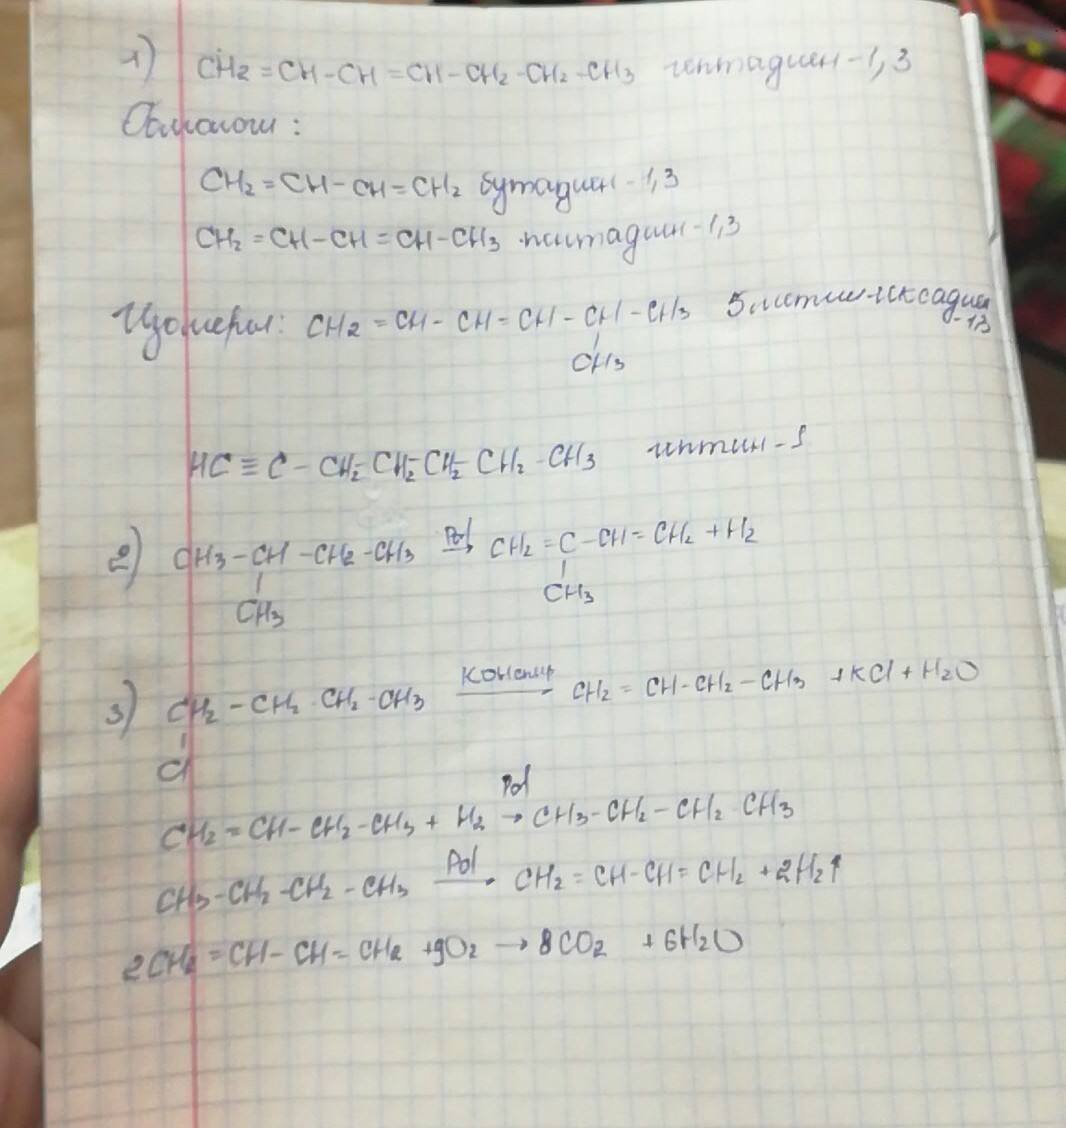 1) CH2=CH-CH=CH-CH2-CH2-CH3 гептадиен-1,3
Гомологи:
CH2=CH-CH=CH2 бутадиен-1,3
CH2=CH-CH=CH-CH3 пентадиен-1,3
Изомеры: CH2=CH-CH=CH-CH-CH3 5метил-гексадиен
-1,3
CH3
HC≡C-CH2-CH2-CH2-CH2-CH3 гептин-1
2) CH3-CH-CH2-CH3 Pd→ CH2=C-CH=CH2+H2
CH3 CH3
3) CH2-CH2-CH2-CH3 KOHспир→ CH2=CH-CH2-CH3 +KCl+H2O
Cl
Pd
CH2=CH-CH2-CH3+H2→CH3-CH2-CH2-CH3
CH3-CH2-CH2-CH3 Pd→ CH2=CH-CH=CH2+2H2↑
2CH2=CH-CH=CH2+9O2→8CO2+6H2O